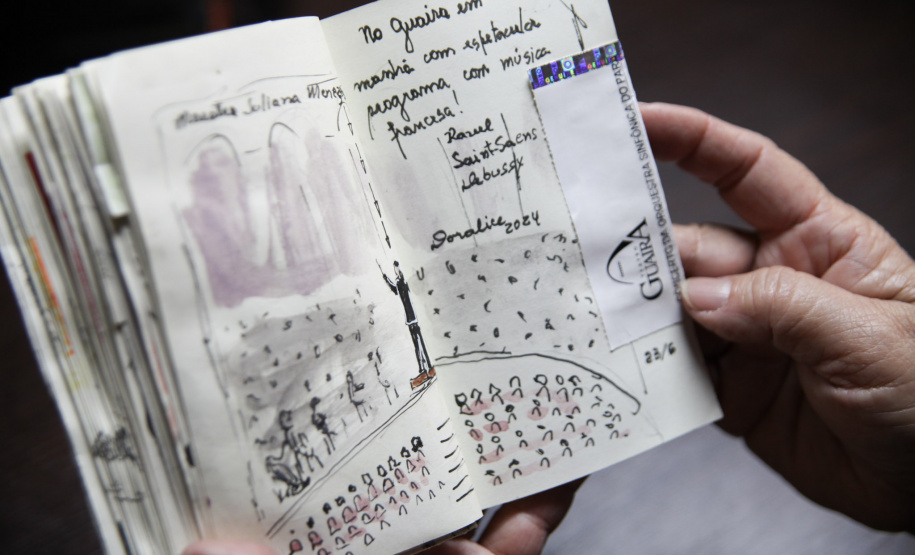 Maestra Juliana Menezes
No Guaíra em
manhã com espetacular
programa com música
francesa!
Ravel
Saint-Saëns
Debussy
Doralice 2024
GUAÍRA
ORQUESTRA SINFÔNICA DO PAR
23/6